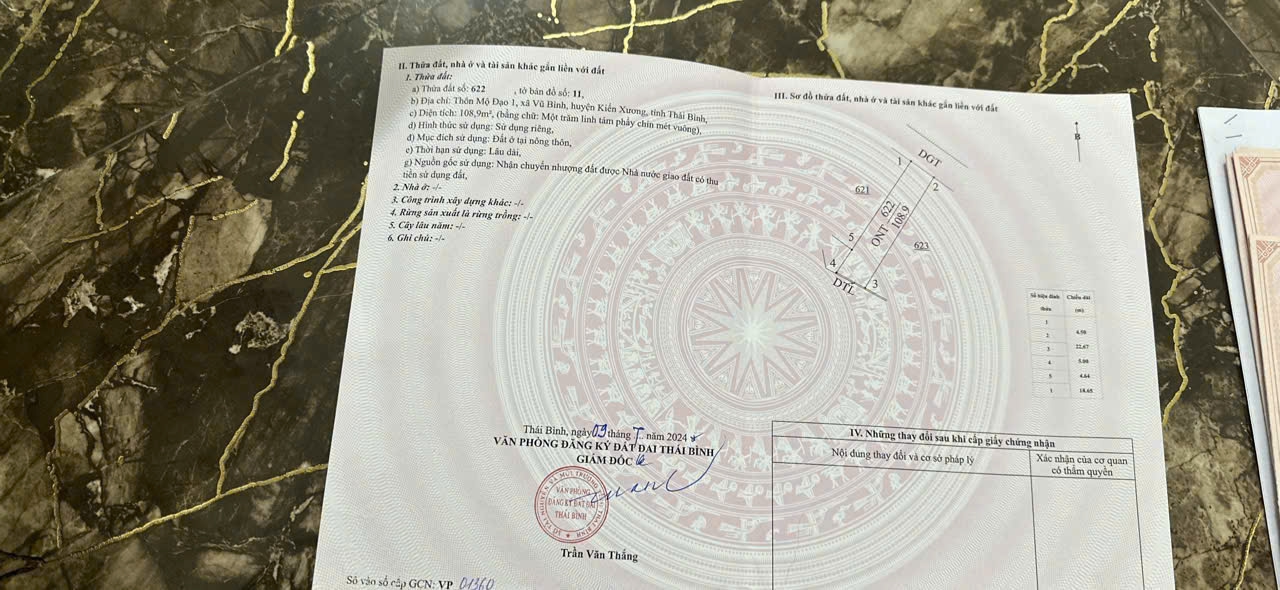 II. Thửa đất, nhà ở và tài sản khác gắn liền với đất
1. Thửa đất:
a) Thửa đất số: 622 , tờ bản đồ số: 11,
b) Địa chỉ: Thôn Mộ Đạo 1, xã Vũ Bình, huyện Kiến Xương, tỉnh Thái Bình,
c) Diện tích: 108,9m², (bằng chữ: Một trăm linh tám phảy chín mét vuông),
d) Hình thức sử dụng: Sử dụng riêng,
đ) Mục đích sử dụng: Đất ở tại nông thôn,
e) Thời hạn sử dụng: Lâu dài,
g) Nguồn gốc sử dụng: Nhận chuyển nhượng đất được Nhà nước giao đất có thu
tiền sử dụng đất,
2. Nhà ở: -/-
3. Công trình xây dựng khác: -/-
4. Rừng sản xuất là rừng trồng: -/-
5. Cây lâu năm: -/-
6. Ghi chú: -/-
Thái Bình, ngày 09 tháng năm 2024
VĂN PHÒNG ĐĂNG KÝ ĐẤT ĐAI THÁI BÌNH
GIÁM ĐỐC
VĂN PHÒNG
ĐĂNG KÝ ĐẤT ĐAI
THÁI BÌNH
Trần Văn Thắng
Số vào sổ cấp GCN: VP 01360
III. Sơ đồ thửa đất, nhà ở và tài sản khác gắn liền với đất
B
DGT
1
2
621
622
ONT
108.9
623
5
4
3
DTL
Số hiệu đỉnh Chiều dài
thửa (m)
1
4.98
2
22.67
3
5.00
4
4.64
5
18.65
1
IV. Những thay đổi sau khi cấp giấy chứng nhận
Nội dung thay đổi và cơ sở pháp lý
Xác nhận của cơ quan
có thẩm quyền